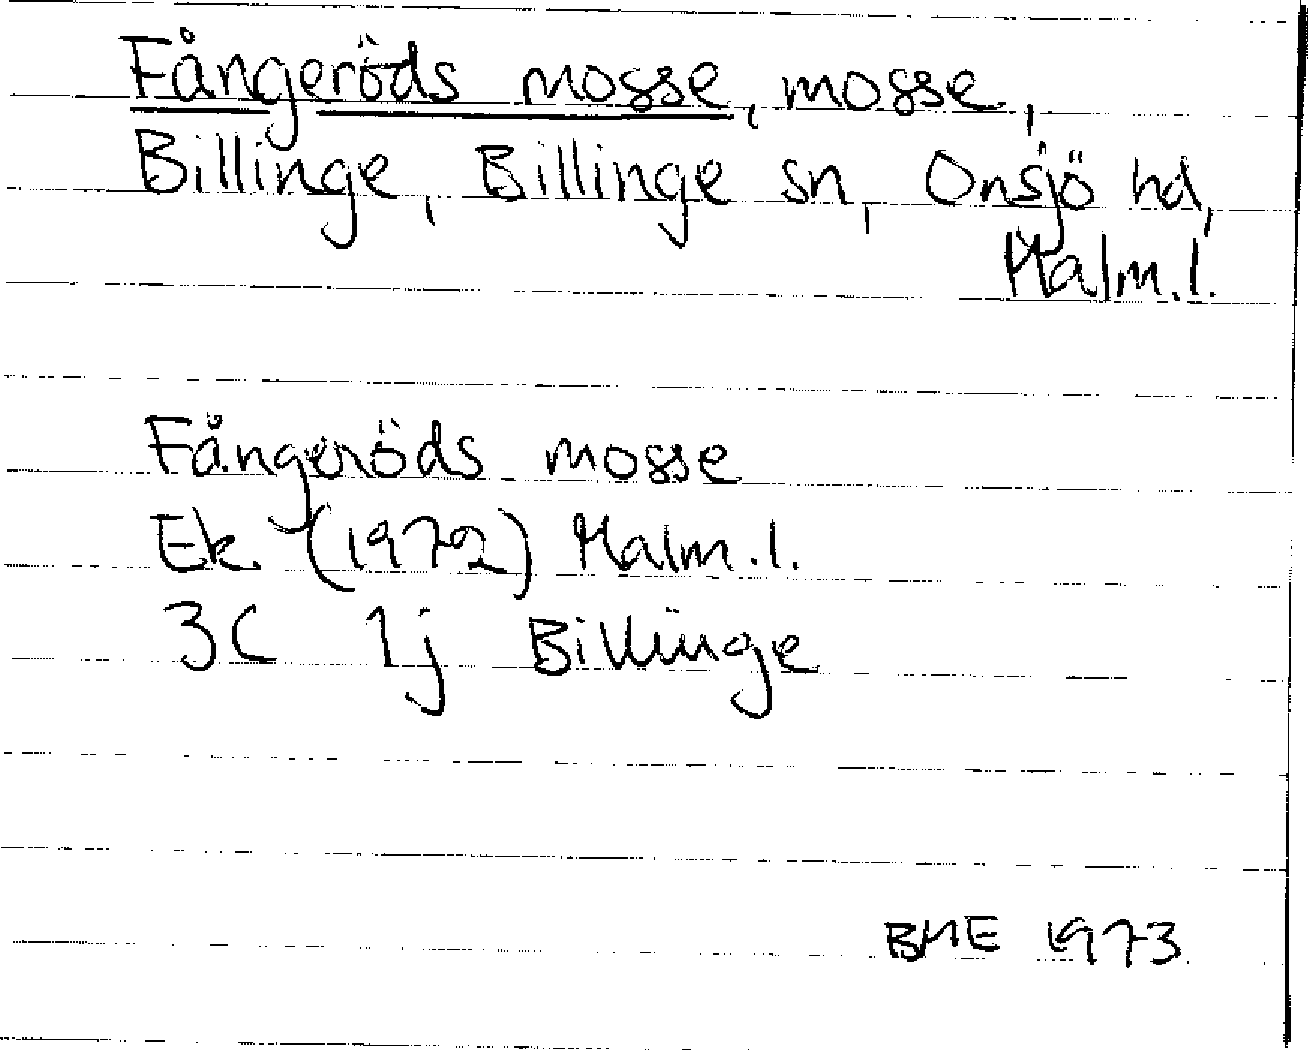 Fångeröds mosse, mosse,
Billinge, Billinge sn, Onsjö hd,
Malm.l.
Fångeröds mosse
Ek. (1972) Malm.l.
3C 1j Billinge
BME 1973